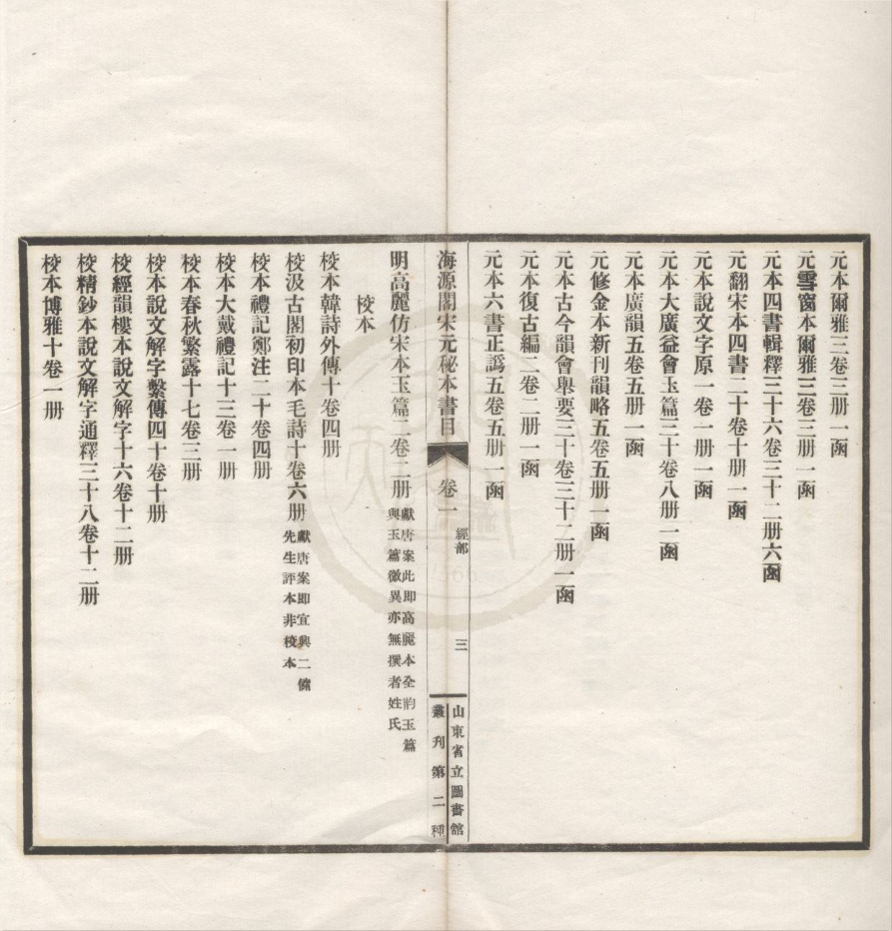 元本爾雅三卷三册一函
元雪窗本爾雅三卷三册一函
元本四書輯釋三十六卷三十二册六函
元翻宋本四書二十卷十册一函
元本說文字原一卷一册一函
元本大廣益會玉篇三十卷八册一函
元本廣韻五卷五册一函
元修金本新刊韻略五卷五册一函
元本古今韻會舉要三十卷三十二册一函
元本復古編二卷二册一函
元本六書正譌五卷五册一函
海源閣宋元秘本書目 卷一
經部 三
山東省立圖書館
叢刊第二種
明高麗仿宋本玉篇二卷二册
獻唐案此即高麗本全韵玉篇
與玉篇微異亦無撰者姓氏
校本
校本韓詩外傳十卷四册
校汲古閣初印本毛詩十卷六册
獻唐案即宜興二儲
先生評本非校本
校本禮記鄭注二十卷四册
校本大戴禮記十三卷一册
校本春秋繁露十七卷三册
校本說文解字繫傳四十卷十册
校經韻樓本說文解字十六卷十二册
校精鈔本說文解字通釋三十八卷十二册
校本博雅十卷一册